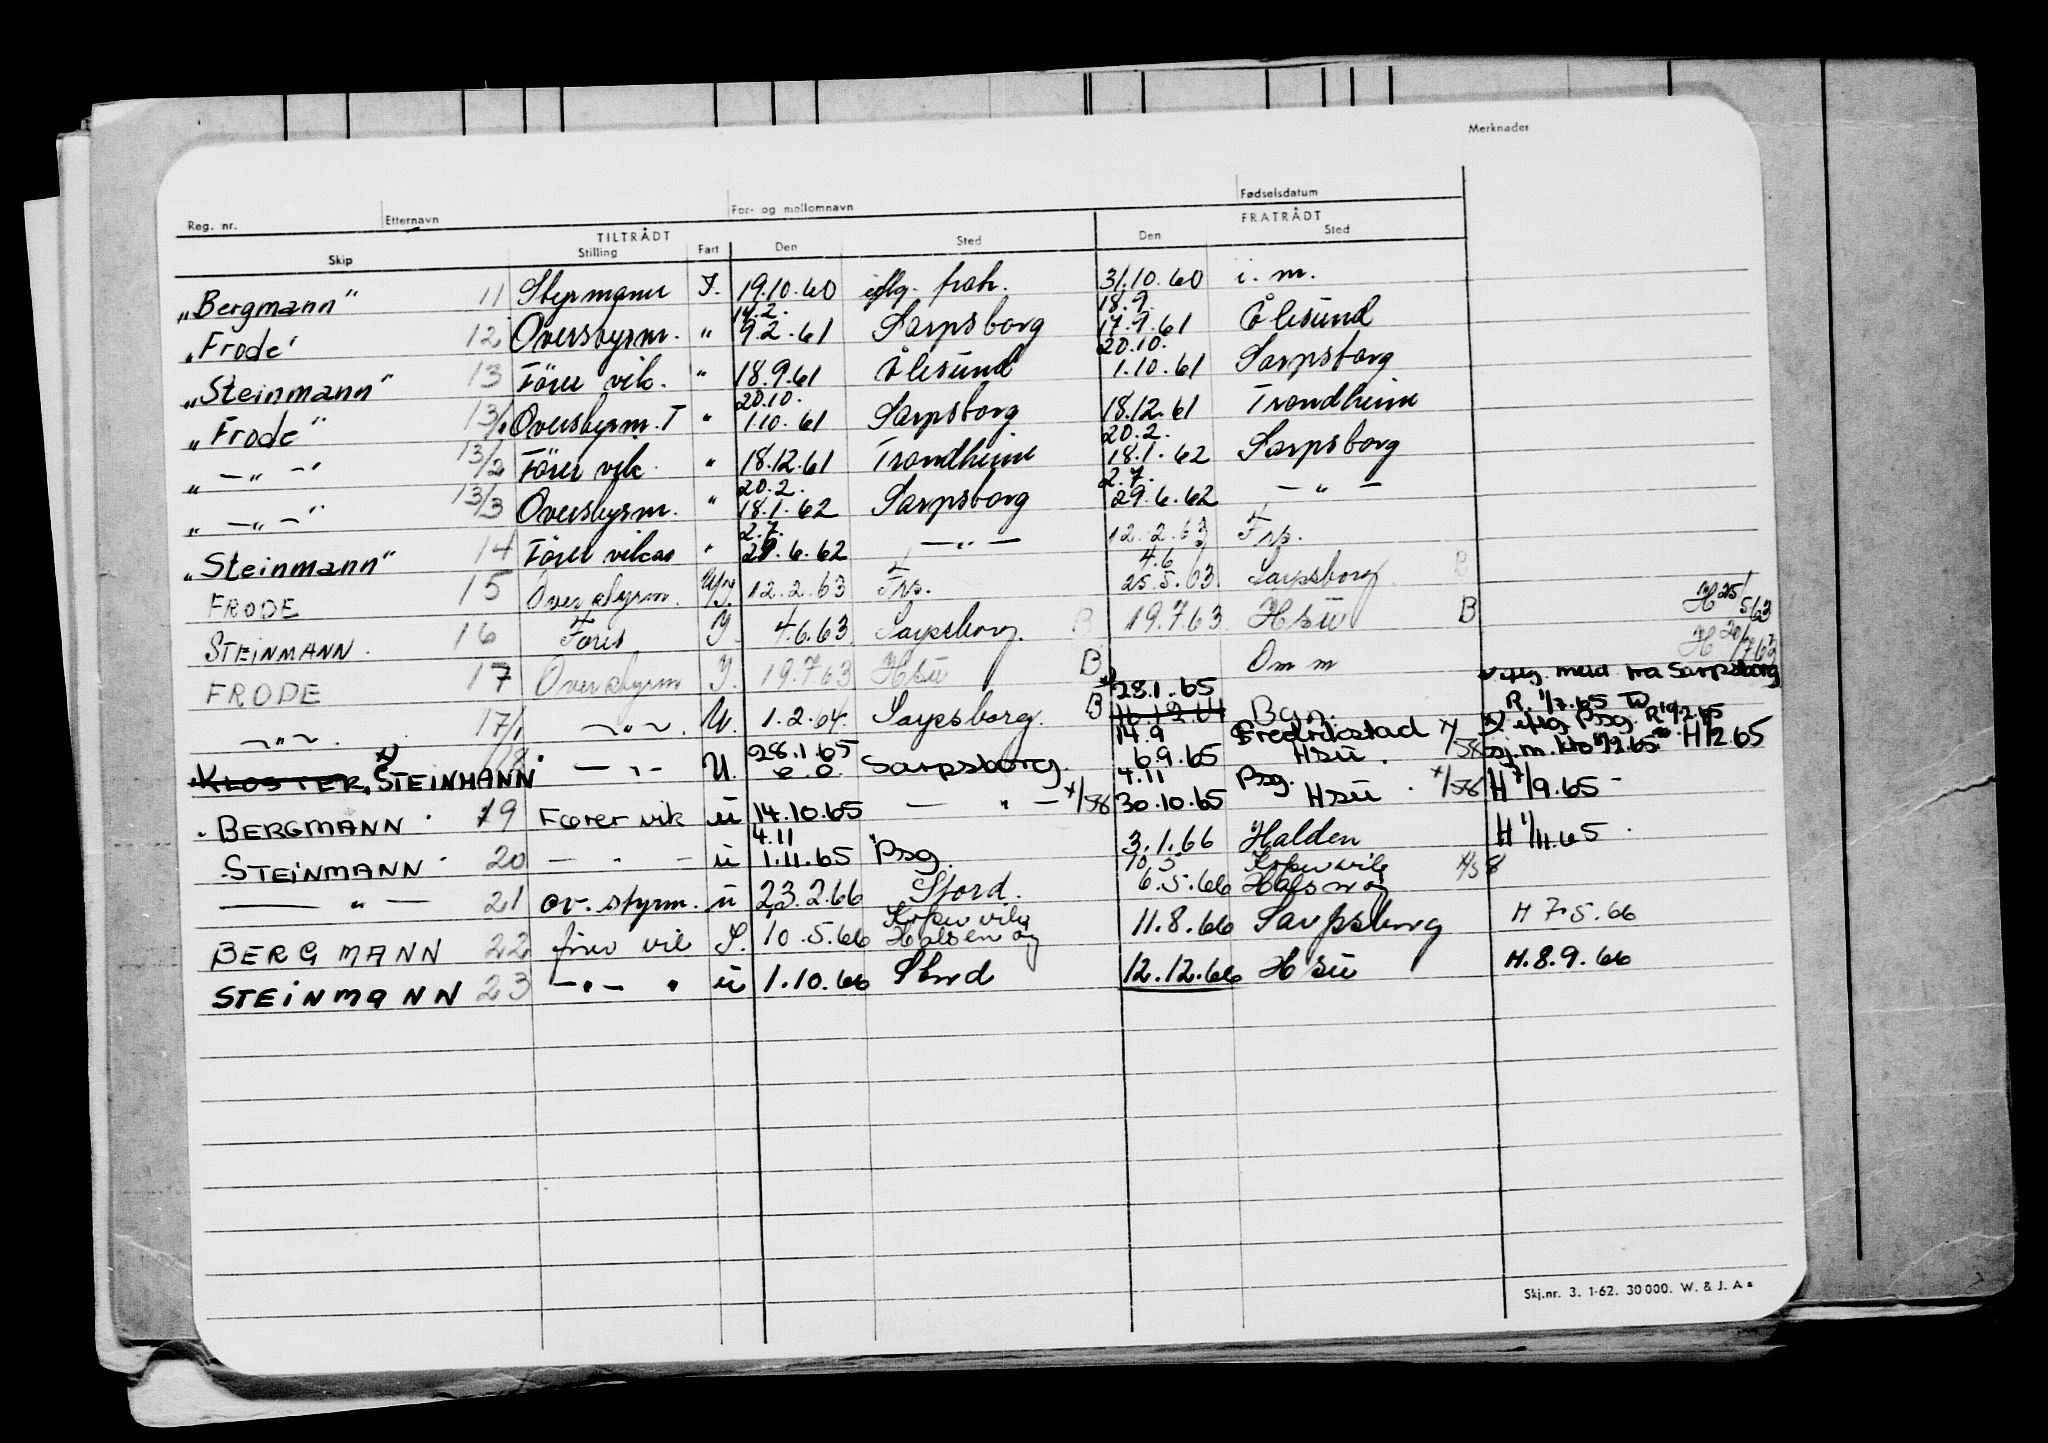 Merknader
Reg. nr. Etternavn For- og mellomnavn Fødselsdatum
TILTRÅDT FRATRÅDT
Skip Stilling Fart Den Sted Den Sted
„Bergmann" 11 Styrmann I. 19.10.60 31.10.60 i. m.
14.2. 18.9.
„Frode" 12 Overstyrm. " 9.2.61 Sarpsborg 17.9.61 Ålesund
20.10.
„Steinmann" 13 Förer vik. " 18.9.61 Ålesund 1.10.61 Sarpsborg
20.10.
„Frode" 13/1 Overstyrm. T " 1.10.61 Sarpsborg 18.12.61 Trondheim
20.2.
„ — " — " 13/2 Förer vik. " 18.12.61 Trondheim 18.1.62 Sarpsborg
20.2. 2.7.
„ — " — " 13/3 Overstyrm. " 18.1.62 Sarpsborg 29.6.62 — " —
2.7.
„Steinmann" 14 Förer vikar " 29.6.62 — " — 12.2.63
4.6
FRODE 15 Overstyrm. 12.2.63 25.5.63 Sarpsborg B H 25/5 63
STEINMANN 16 Förer I. 4.6.63 Sarpsborg. B 19.7.63 Hsü B H 20/7 63
FRODE 17 Overstyrm I. 19.7.63 Hsü B Om m meld. fra Sarpsborg
28.1.65 R. 1/7.65 TW
— " — 17/1 — " — U. 1.2.64. Sarpsborg. B 16.12.64 Bgn. x) Psg. R 19/2.65
28.1.65 14.9 Fredrikstad x/58
KLOSTER, x) STEINMANN 18 — " — U. Sarpsborg. 6.9.65 Hsü. H 1/2 65
4.11 Psg.
"BERGMANN" 19 Fører vik ü 14.10.65 — " — x/58 30.10.65 Hsü x/58 H 7/9.65
4.11
"STEINMANN" 20 — " — ü 1.11.65 Psg. 3.1.66 Halden H 1/11.65
10.5 Kopervik x/58
— " — 21 ov. styrm. ü 23.2.66 Stord. 6.5.66 Halsnøy
Kopervik
BERGMANN 22 fører vik I. 10.5.66 11.8.66 Sarpsborg H 7.5.66
STEINMANN 23 — " — " ü 1.10.66 Stord 12.12.66 Hsü H. 8.9.66
Skj.nr. 3. 1-62. 30 000. W. & J. A s